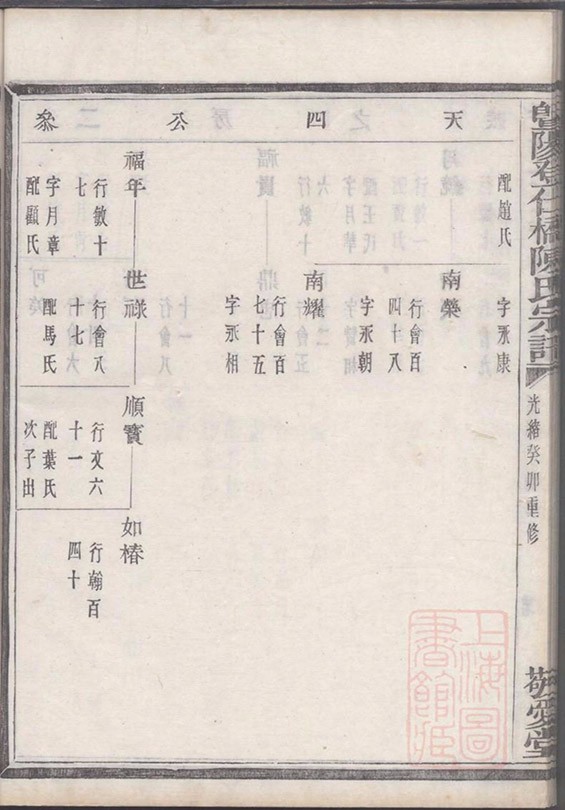 暨陽登仕橋陳氏宗譜
光緒癸卯重修
敬愛堂
天四公派
配趙氏
字承康
南榮
行會百
四十八
字承朝
南耀
行會百
七十五
字承相
福年
行敏十
七
字月章
配顧氏
世祿
行會八
十七
配馬氏
順寶
行文六
十一
配葉氏
次子出
如椿
行翰百
四十
上海圖
書館藏